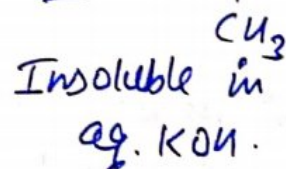 CH₃
Insoluble in
aq. KOH.